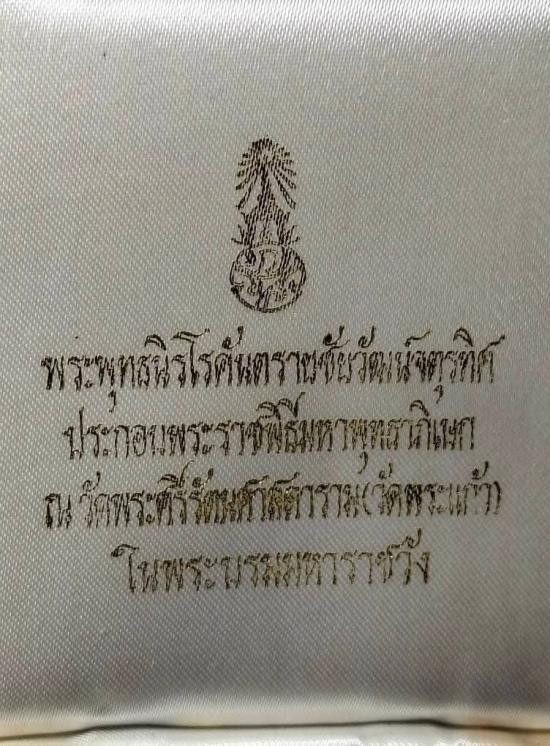 พระพุทธนิรโรคันตรายชัยวัฒน์จตุรทิศ
ประกอบพระราชพิธีมหาพุทธาภิเษก
ณ วัดพระศรีรัตนศาสดาราม(วัดพระแก้ว)
ในพระบรมมหาราชวัง